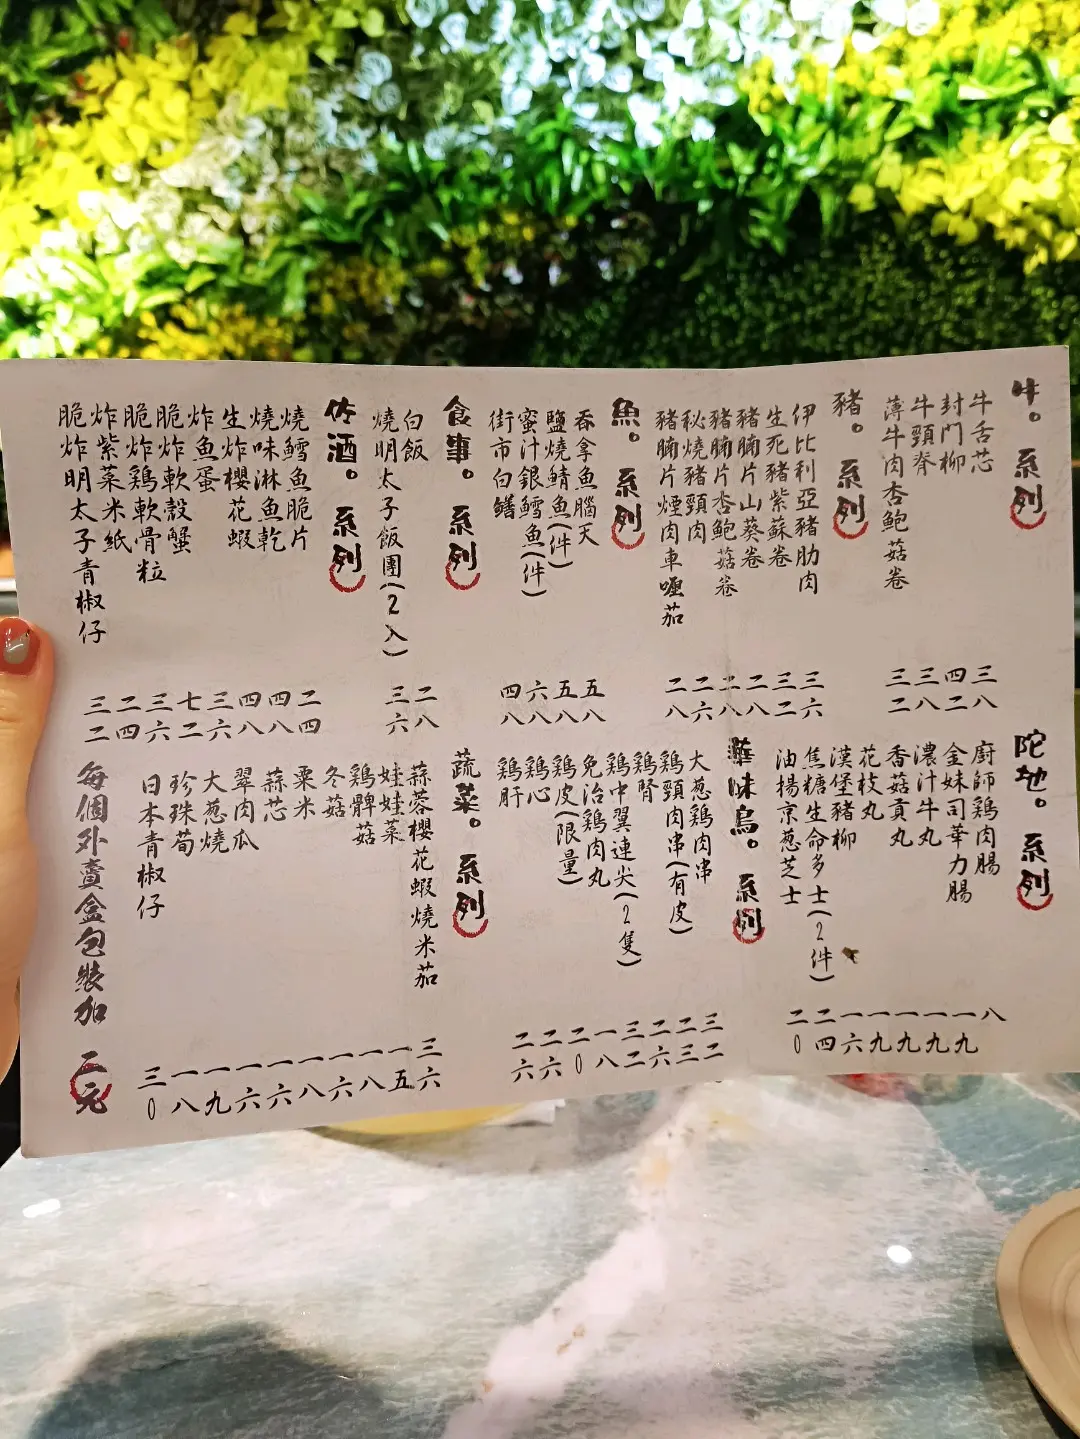 牛。系列
牛舌芯 三八
封門柳 四二
牛頸脊 三八
薄牛肉杏鮑菇卷 三二
豬。系列
伊比利亞豬肋肉 三六
生死豬紫蘇卷 三二
豬腩片山葵卷 二八
豬腩片杏鮑菇卷 二八
秘燒豬頸肉 二六
豬腩片煙肉車喱茄 二八
魚。系列
吞拿魚腦天 五八
鹽燒鯖魚(件) 五八
蜜汁銀鱈魚(件) 六八
街市白鱔 四八
食事。系列
白飯 二八
燒明太子飯團(2入) 三六
佐酒。系列
燒鱈魚脆片 二四
燒味淋魚乾 四八
生炸櫻花蝦 四八
炸魚蛋 三六
脆炸軟殼蟹 七二
脆炸鷄軟骨粒 三六
炸紫菜米紙 二四
脆炸明太子青椒仔 三二
陀地。系列
廚師鷄肉腸 八
金妹司華力腸 一九
濃汁牛丸 一九
香菇貢丸 一九
花枝丸 一九
漢堡豬柳 一六
焦糖生命多士(2件) 二四
油揚京葱芝士 二0
華味鳥。系列
大葱鷄肉串 三二
鷄頸肉串(有皮) 二三
鷄腎 二六
鷄中翼連尖(2隻) 三二
免治鷄肉丸 一八
鷄皮(限量) 二0
鷄心 二六
鷄肝 二六
蔬菜。系列
蒜蓉櫻花蝦燒米茄 三六
娃娃菜 一五
鷄髀菇 一八
冬菇 一六
粟米 一八
蒜芯 一六
翠肉瓜 一六
大葱燒 一九
珍珠筍 一八
日本青椒仔 三0
每個外賣盒包裝加 二元